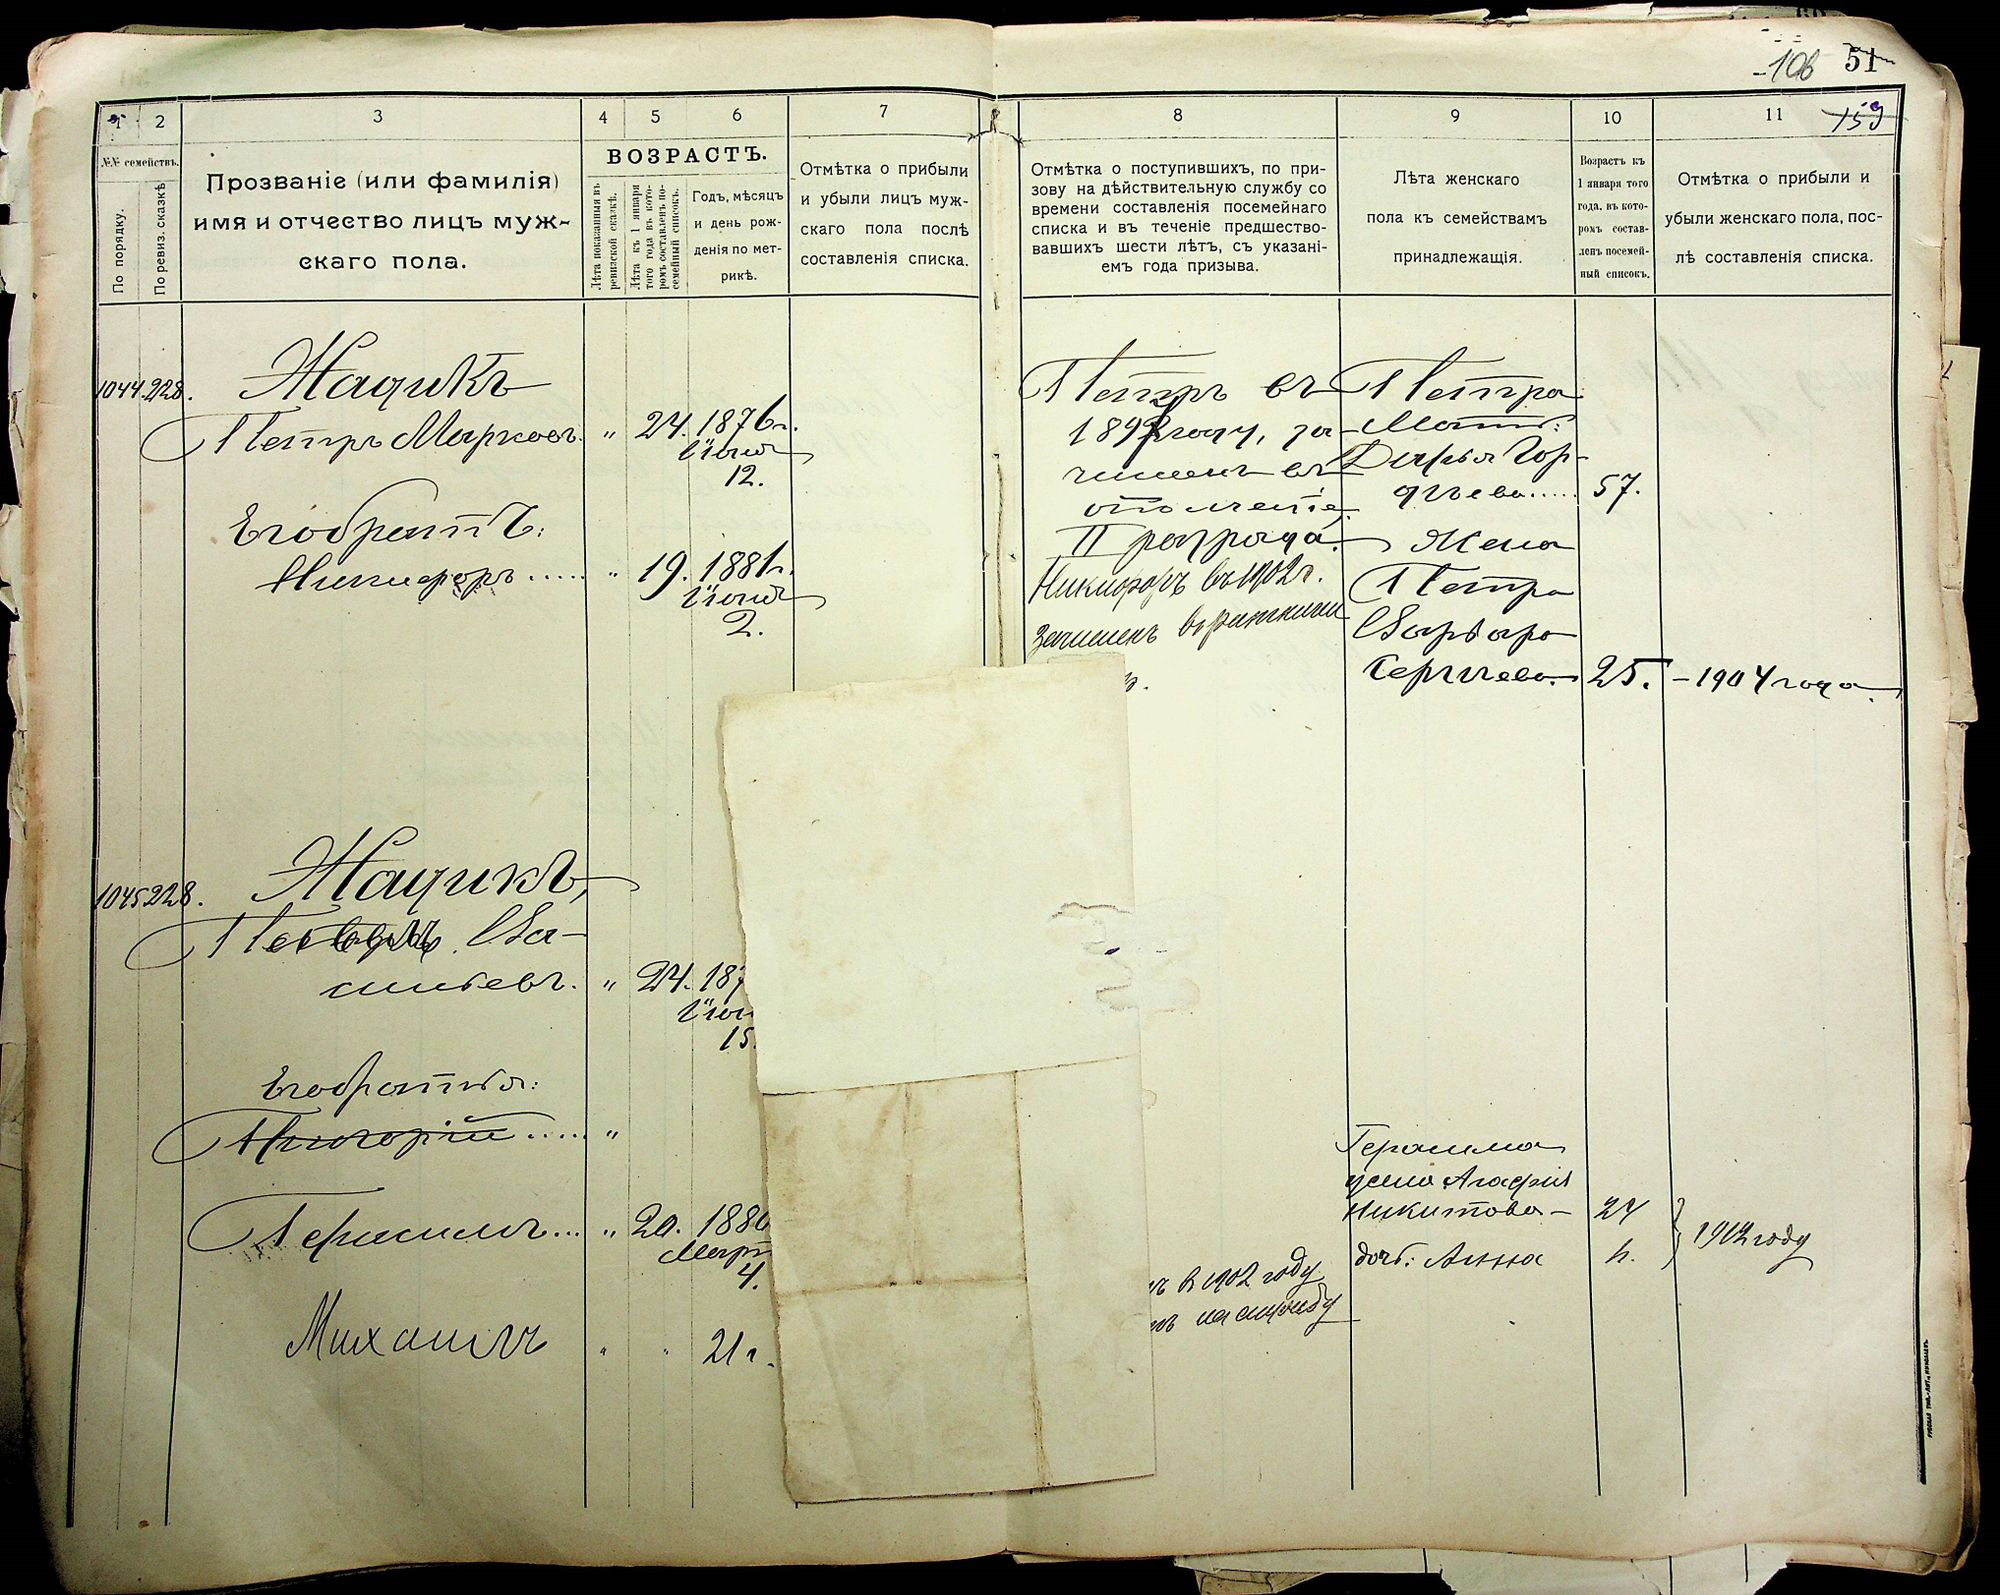 106 51
159
1
2
3
4
5
6
7
8
9
10
11
№№ семействъ.
По порядку.
По ревиз. сказкѣ
Прозваніе (или фамилія)
имя и отчество лицъ муж-
скаго пола.
ВОЗРАСТЪ.
Лѣта показанныя въ
ревизской сказкѣ.
Лѣта къ 1 января
того года въ кото-
ромъ составленъ по-
семейный списокъ.
Годъ, мѣсяцъ
и день рож-
денія по мет-
рикѣ.
Отмѣтка о прибыли
и убыли лицъ муж-
скаго пола послѣ
составленія списка.
Отмѣтка о поступившихъ, по при-
зову на дѣйствительную службу со
времени составленія посемейнаго
списка и въ теченіе предшество-
вавшихъ шести лѣтъ, съ указані-
емъ года призыва.
Лѣта женскаго
пола къ семействамъ
принадлежащія.
Возрастъ къ
1 января того
года, въ кото-
ромъ состав-
ленъ посемей-
ный списокъ.
Отмѣтка о прибыли и
убыли женскаго пола, пос-
лѣ составленія списка.
1044. 228.
Жадикъ
Петръ Марковъ. " 24. 1876 г.
Іюня
12.
Его братъ:
Никифоръ ..... " 19. 1881 г.
Іюня
2.
Петръ въ
году, за-
численъ въ
ополченіе
II разряда.
Никифоръ въ 1902 г.
зачисленъ въ ратники
Петра
Мать:
Дарья Гор-
дѣева ..... 57.
Жена
Петра
Варвара
Сергѣева. 25. - 1904 года.
1045 228.
Жадикъ,
Ва-
сильевъ. " 24. 187
Іюн
15.
Его братья:
Григорій ..... "
Герасимъ ... " 20. 1880
Март
4.
Михаилъ " " 21 г.
въ 1902 году
на службу
Герасима
жена Агафія
Никитова - 24
дочь: Анна 1912 году